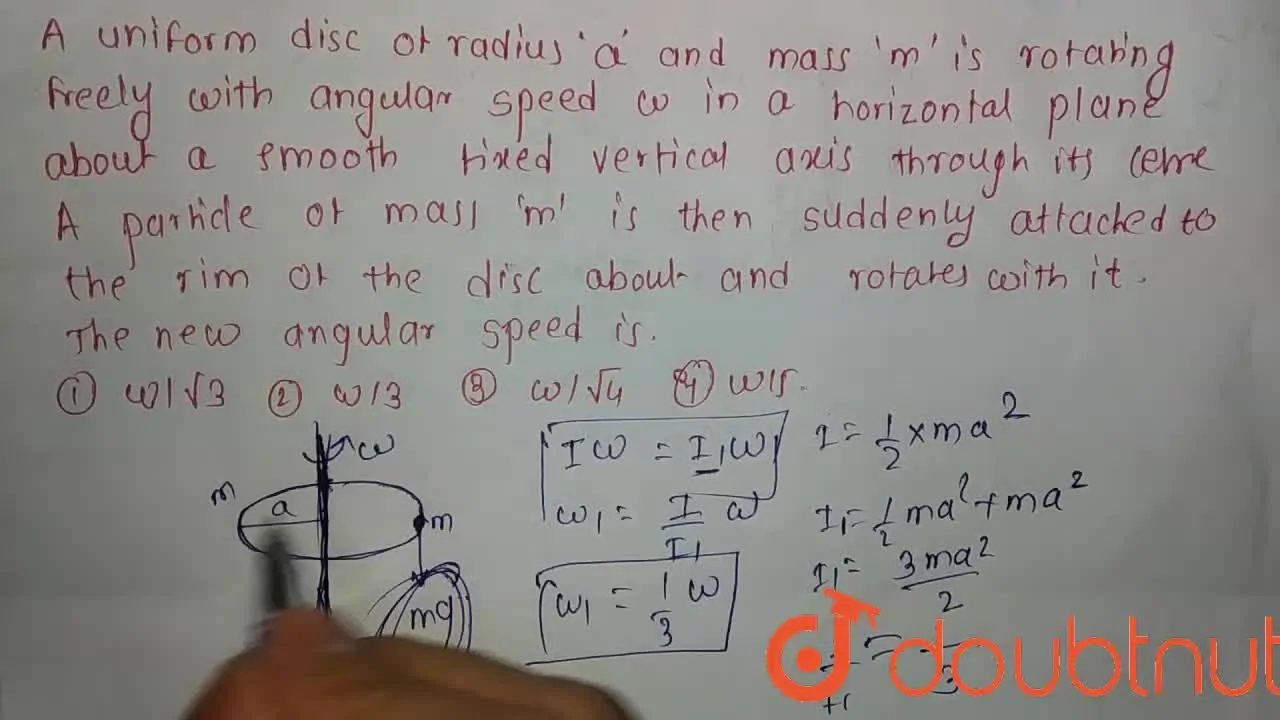 A uniform disc of radius 'a' and mass 'm' is rotating
freely with angular speed ω in a horizontal plane
about a smooth fixed vertical axis through its
A particle of mass 'm' is then suddenly attached to
the rim of the disc about and rotates with it.
The new angular speed is.
① ω/√3 ② ω/3 ③ ω/√4 ④ ω/5.
ω
m
a
m
mg
Iω = I₁ω
ω₁ = I/I₁ ω
ω₁ = 1/3 ω
I = 1/2 × ma²
I₁ = 1/2 ma² + ma²
I₁ = 3ma²/2
doubtnut